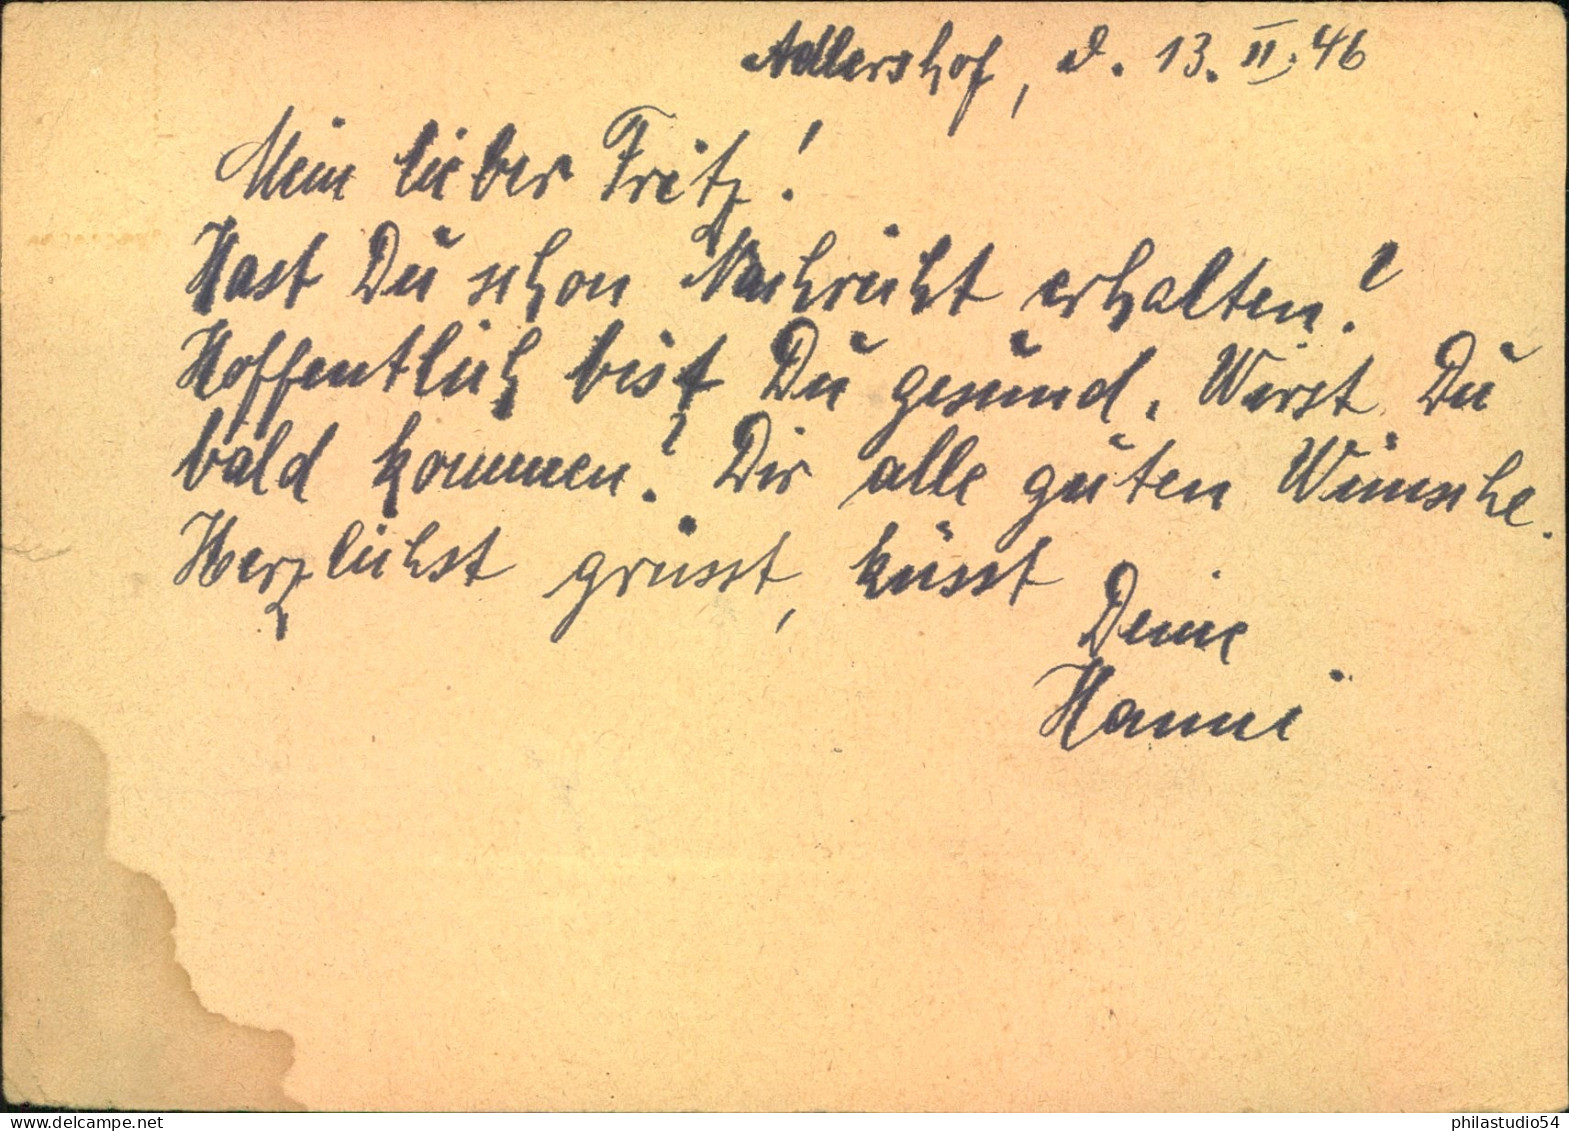 Adlershof, d. 13. II. 46
Mein lieber Fritz!
Hast Du schon Nachricht erhalten?
Hoffentlich bist Du gesund. Wirst Du
bald kommen? Dir alle guten Wünsche.
Herzlichst grüsst, küsst
Deine
Hanni
philastudio54